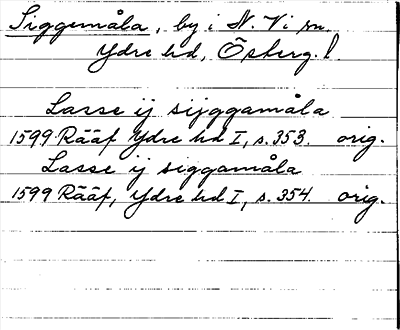 Siggemåla, by i N. Vi sn.
Ydre hd, Österg. l.
Lasse ij sijggamåla
1599 Rääf Ydre hd I, s. 353. orig.
Lasse ij siggamåla
1599 Rääf, Ydre hd I, s. 354. orig.